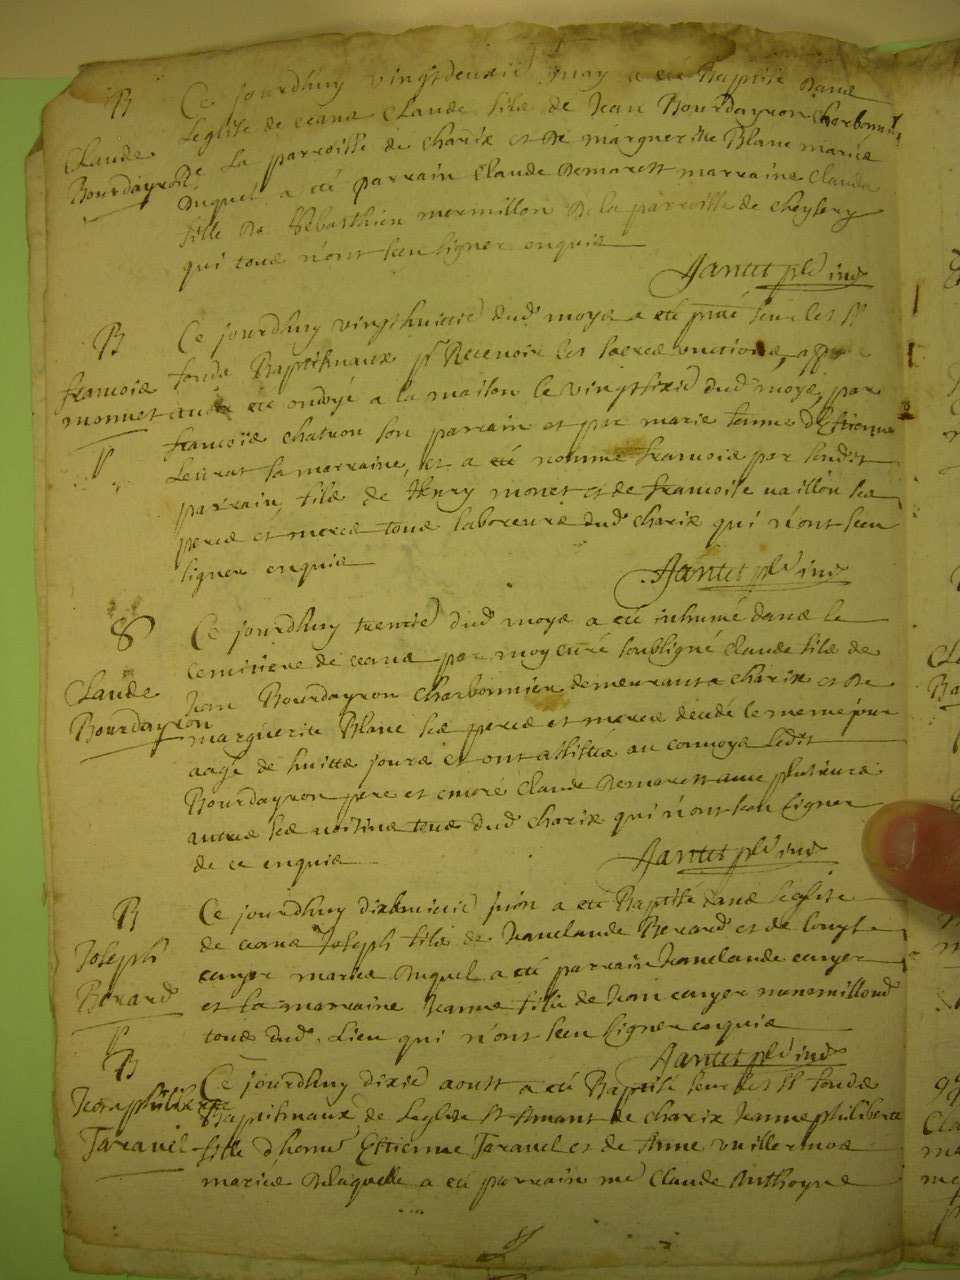 B
Claude
Bourdayron
Ce jourdhuy vingtdeuxie may a eté Baptisé dans
Leglise de ceans Claude fils de Jean Bourdayron charbonnie
de La parroisse de charix et de margueritte Blanc mariés
Duquel a eté parrain Claude Demarest marraine Clauda
fille de Sebasthien mermillon de la parroisse de cheysery
qui tous n'ont sceu signer enquis
Jantet pbr ind
B
francois
monnet
Ce jourdhuy vingthuictie dud moys a eté sur les ss
fonds Baptismaux pr Recevoir les sacrés unctions,
eté ondoyé a la maison le vingtsixie dud moys, par
francois chatron son parrain et par marie femme d'Estienne
Leurat sa marraine, et a eté nommé francois par sondt
parrain, fils de Henry monet et de francoise vaillon ses
peres et meres tous laboreurs dud charix qui n'ont sceu
signer enquis
Jantet pbr ind
S
Claude
Bourdayron
Ce jourdhuy trentie dud moys a eté inhumé dans le
cemitiere de ceans par moy curé soubsigné Claude fils de
Jean Bourdayron Charbonnier demeurant a charix et de
marguerite Blanc ses peres et meres decedé le meme jour
aagé de huitts jours et ont assistés au convoys Ledit
Bourdayron pere et encore Claude Demarest avec plusieurs
autres ses voisins tous dud charix qui n'ont sceu signer
de ce enquis
Jantet pbr ind
B
Joseph
Berard
Ce jourdhuy dixhuictie juin a eté Baptisé dans leglise
de ceans Joseph fils de Jeanclaude Berard et de
mariés Duquel a eté parrain Jeanclaude
et la marraine Jeanne fille de Jean
tous dud. Lieu qui n'ont sceu signer enquis
Jantet pbr ind
B
Jeanphiliberte
Taravel
Ce jourdhuy dixie aoust a eté Baptisé sur les ss fonds
Baptismaux de Leglise St Amant de charix Jeanne philiberte
fille d'honn Estienne Taravel et de Anne vuillermoz
mariés De laquelle a eté parrain me Claude Anthoyne